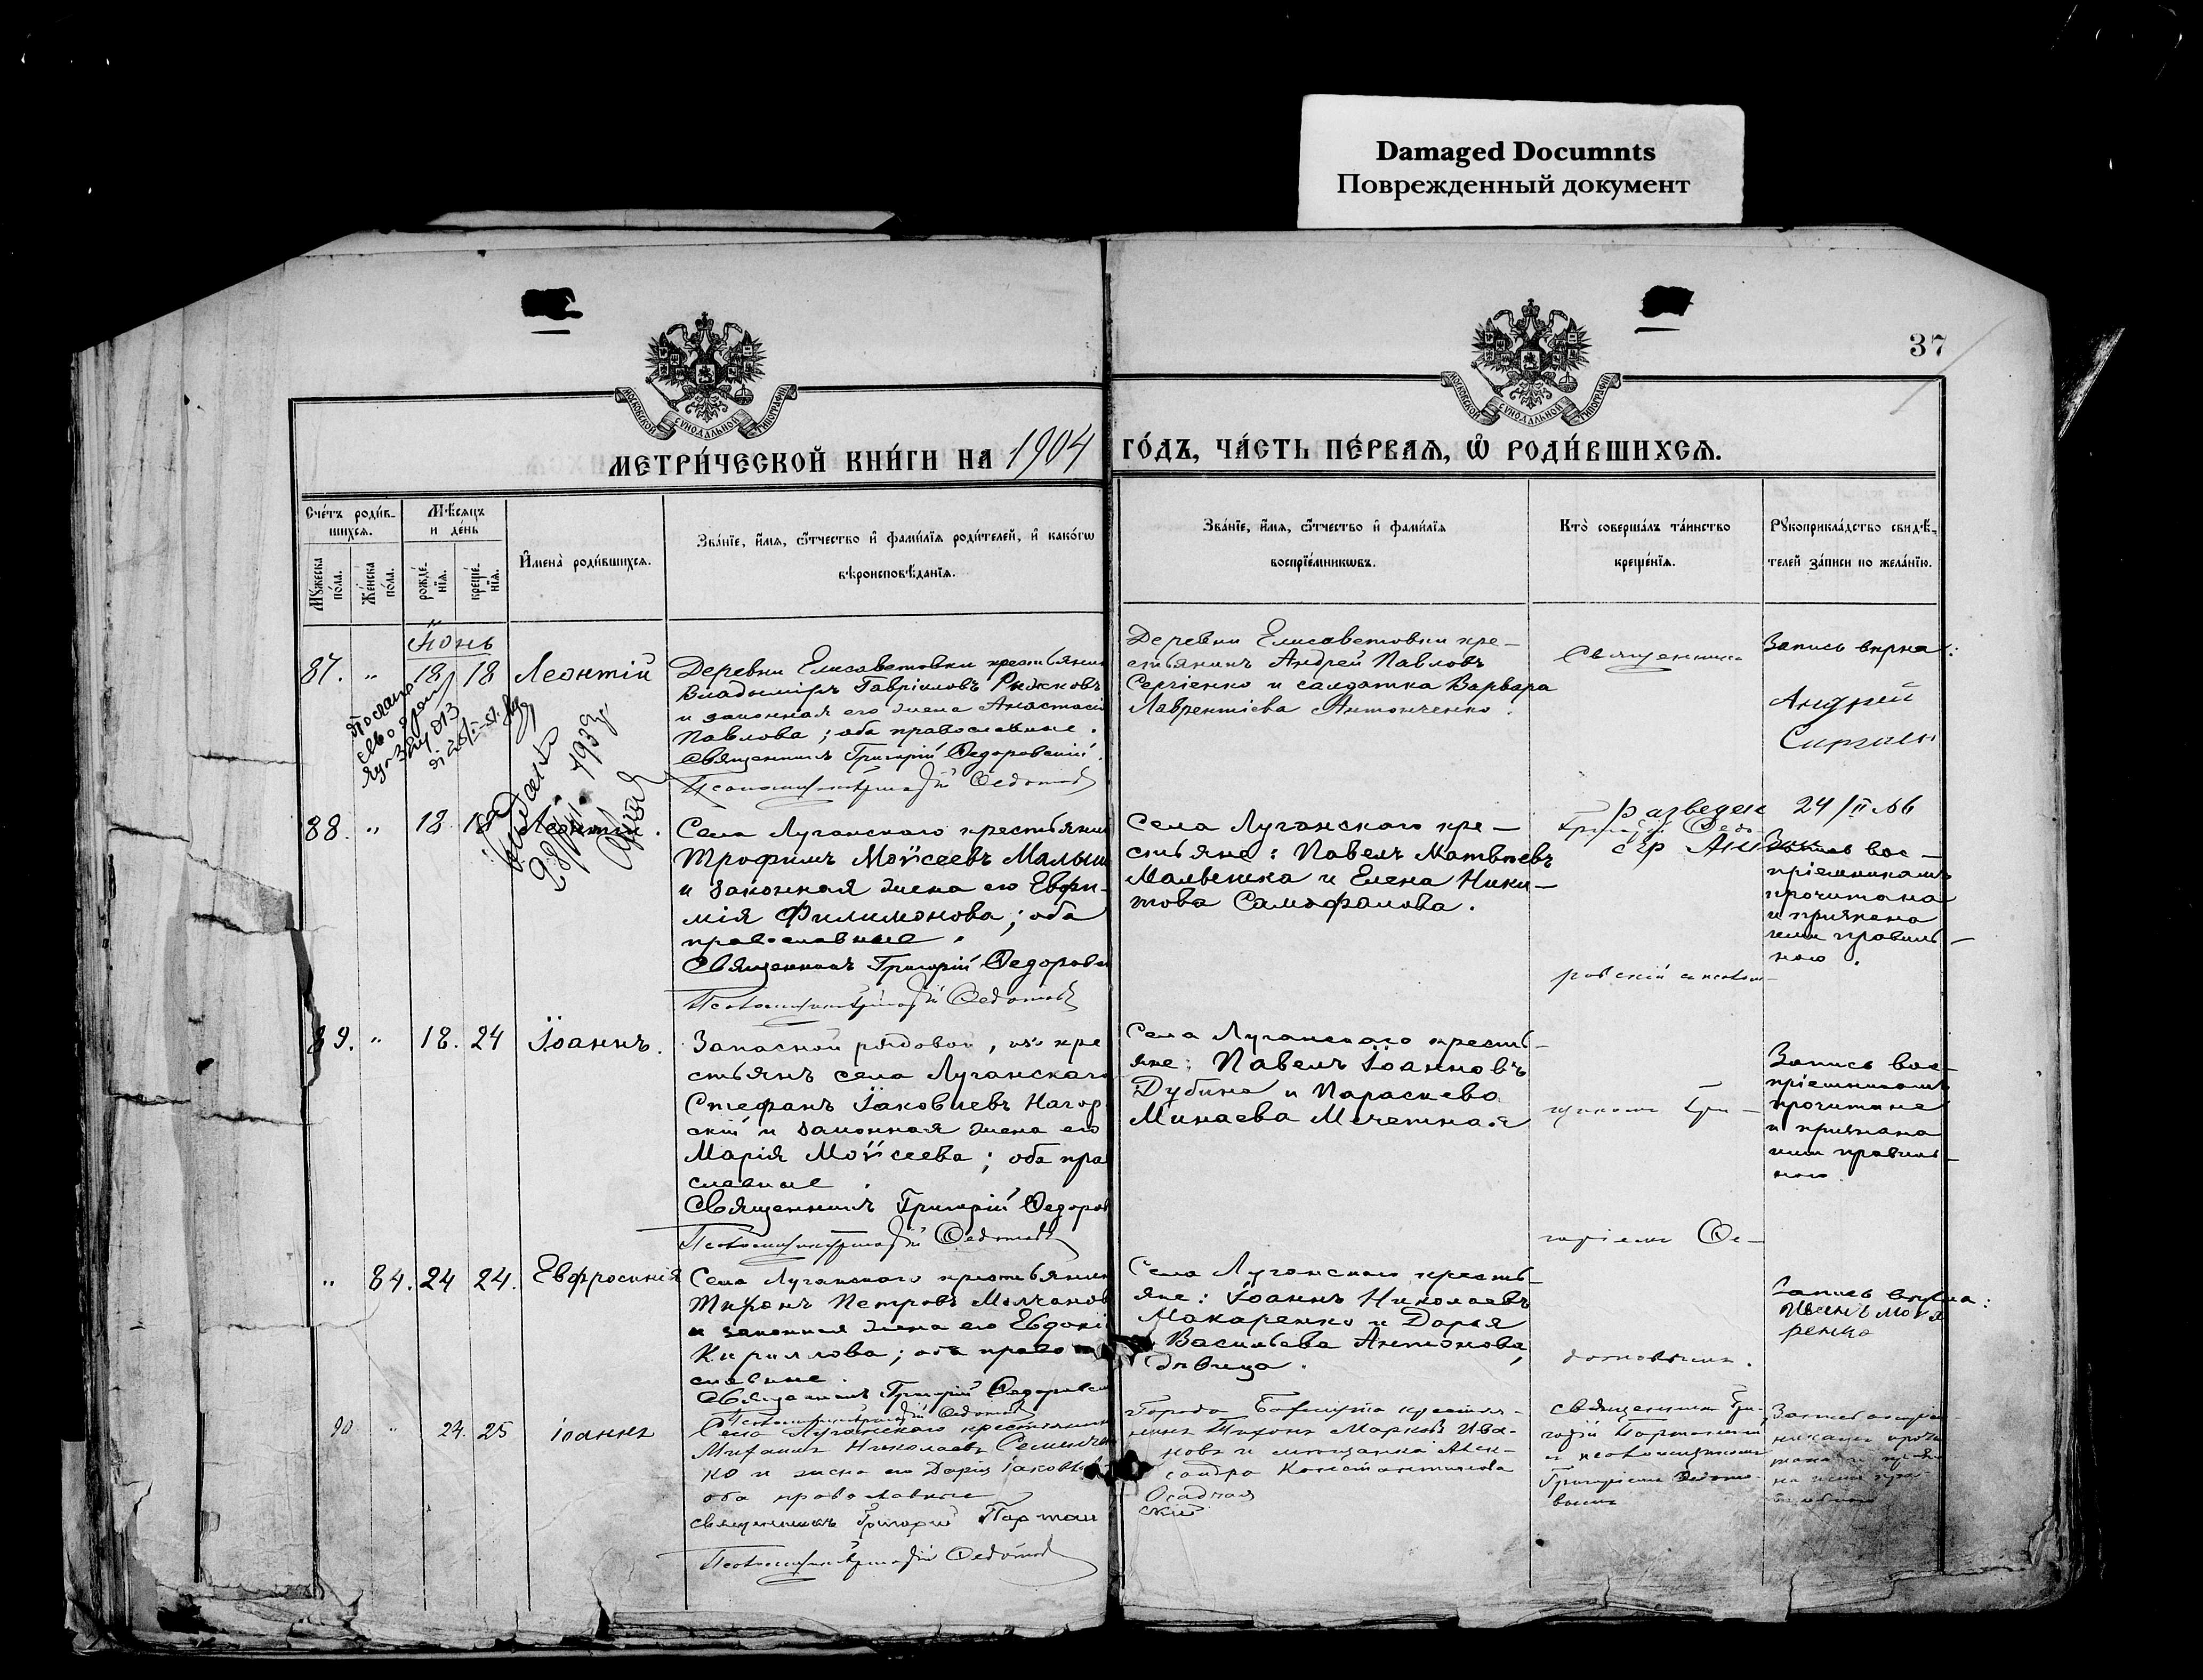 Damaged Documnts
Поврежденный документ
37
МОСКОВСКОЙ СѴНОДАЛЬНОЙ ТИПОГРАФІИ
МОСКОВСКОЙ СѴНОДАЛЬНОЙ ТИПОГРАФІИ
МЕТРИ́ЧЕСКОЙ КНИ́ГИ НА 1904 ГО́ДЪ, ЧА́СТЬ ПЕ́РВАѦ, Ѡ҆ РОДИ́ВШИХСѦ.
Сче́тъ роди́в-
шихсѧ.
Мꙋ́жеска по́ла.
Же́нска по́ла.
Мѣ́сѧцъ
и день
рожде́нїѧ.
креще́нїѧ.
И҆мена̀ роди́вшихсѧ.
Зва́нїе, и҆́мѧ, ѻ҆́тчество и҆ фами́лїѧ роди́телей, и҆ како́гѡ
вѣроисповѣ́данїѧ.
Зва́нїе, и҆́мѧ, ѻ҆́тчество и҆ фами́лїѧ
воспрїе́мникѡвъ.
Кто̀ соверша́лъ та́инство
креще́нїѧ.
Рꙋкоприкла́дство свидѣ́-
телей за́писи по жела́нїю.
Іюнь
87. " 18 18 Леонтій
Деревни Елисаветовки крестьянин
Владиміръ Гавріиловъ Рыжковъ
и законная его жена Анастасі
Павлова; оба православные.
Священникъ Григорій Федоровскій
Псаломщикъ Григорій Федотов
Деревни Елисаветовки кре-
стьянинъ Андрей Павловъ
Сергіенко и солдатка Варвара
Лаврентіева Антонченко.
Священника
Запись вѣрна:
Андрей
28/VII. 1933г
88. " 18 18 Леонтій.
Села Луганского крестьянин
Трофимъ Мойсеевъ Малыш
и законная жена его Евфи-
мія Филимонова; оба
православные.
Священникъ Григорій Федоровс
Псаломщикъ Григорій Федотов
Села Луганского кре-
стьяне: Павелъ Матвѣевъ
Малышка и Елена Ники-
това Самофалова.
24/II
Запись вос-
пріемникамъ
прочитана
и признана
ими правиль-
ною.
89. " 18. 24 Іоаннъ.
Запасной рядовой, изъ кре
стьянъ села Луганскаго
Стефанъ Іаковлевъ Нагор
скій и законная жена его
Марія Мойсеева; оба пра
славные.
Священникъ Григорій Федоров
Псаломщикъ Григорій Федотов
Села Луганского кресть-
яне: Павелъ Іоанновъ
Дубина и Параскева
Минаева Мечетная
щикомъ Гри-
Запись вос-
пріемникамъ
прочитана
и признана
ими правиль-
ною.
горіемъ Фе-
" 84. 24 24. Евфросинія
Села Луганского крестьянин
Тихонъ Петровъ Молчанов
и законная жена его Евдокі
Кириллова; оба право
славные.
Священникъ Григорій Федоровск
Псаломщикъ Григорій Федотов
Села Луганского кресть-
яне: Іоаннъ Николаевъ
Макаренко и Дарья
Васильева Антонова,
дѣвица.
дотовымъ.
Запись вѣрна:
Иванъ Мака
ренко
90 " 24. 25 Іоаннъ
Села Луганского крестьянин
Михаилъ Николаевъ Семенчен
ко и жена его Дарія Іаковлев
оба православные
Священникъ Григорій Портан
Псаломщикъ Григорій Федотов
Города Бахмута крестья-
нинъ Тихонъ Марковъ Ива-
новъ и мѣщанка Алек-
сандра Константинова
Осадчая
скій
Священникъ Гри-
горій
и псаломщикомъ
Григоріемъ Федото-
вымъ